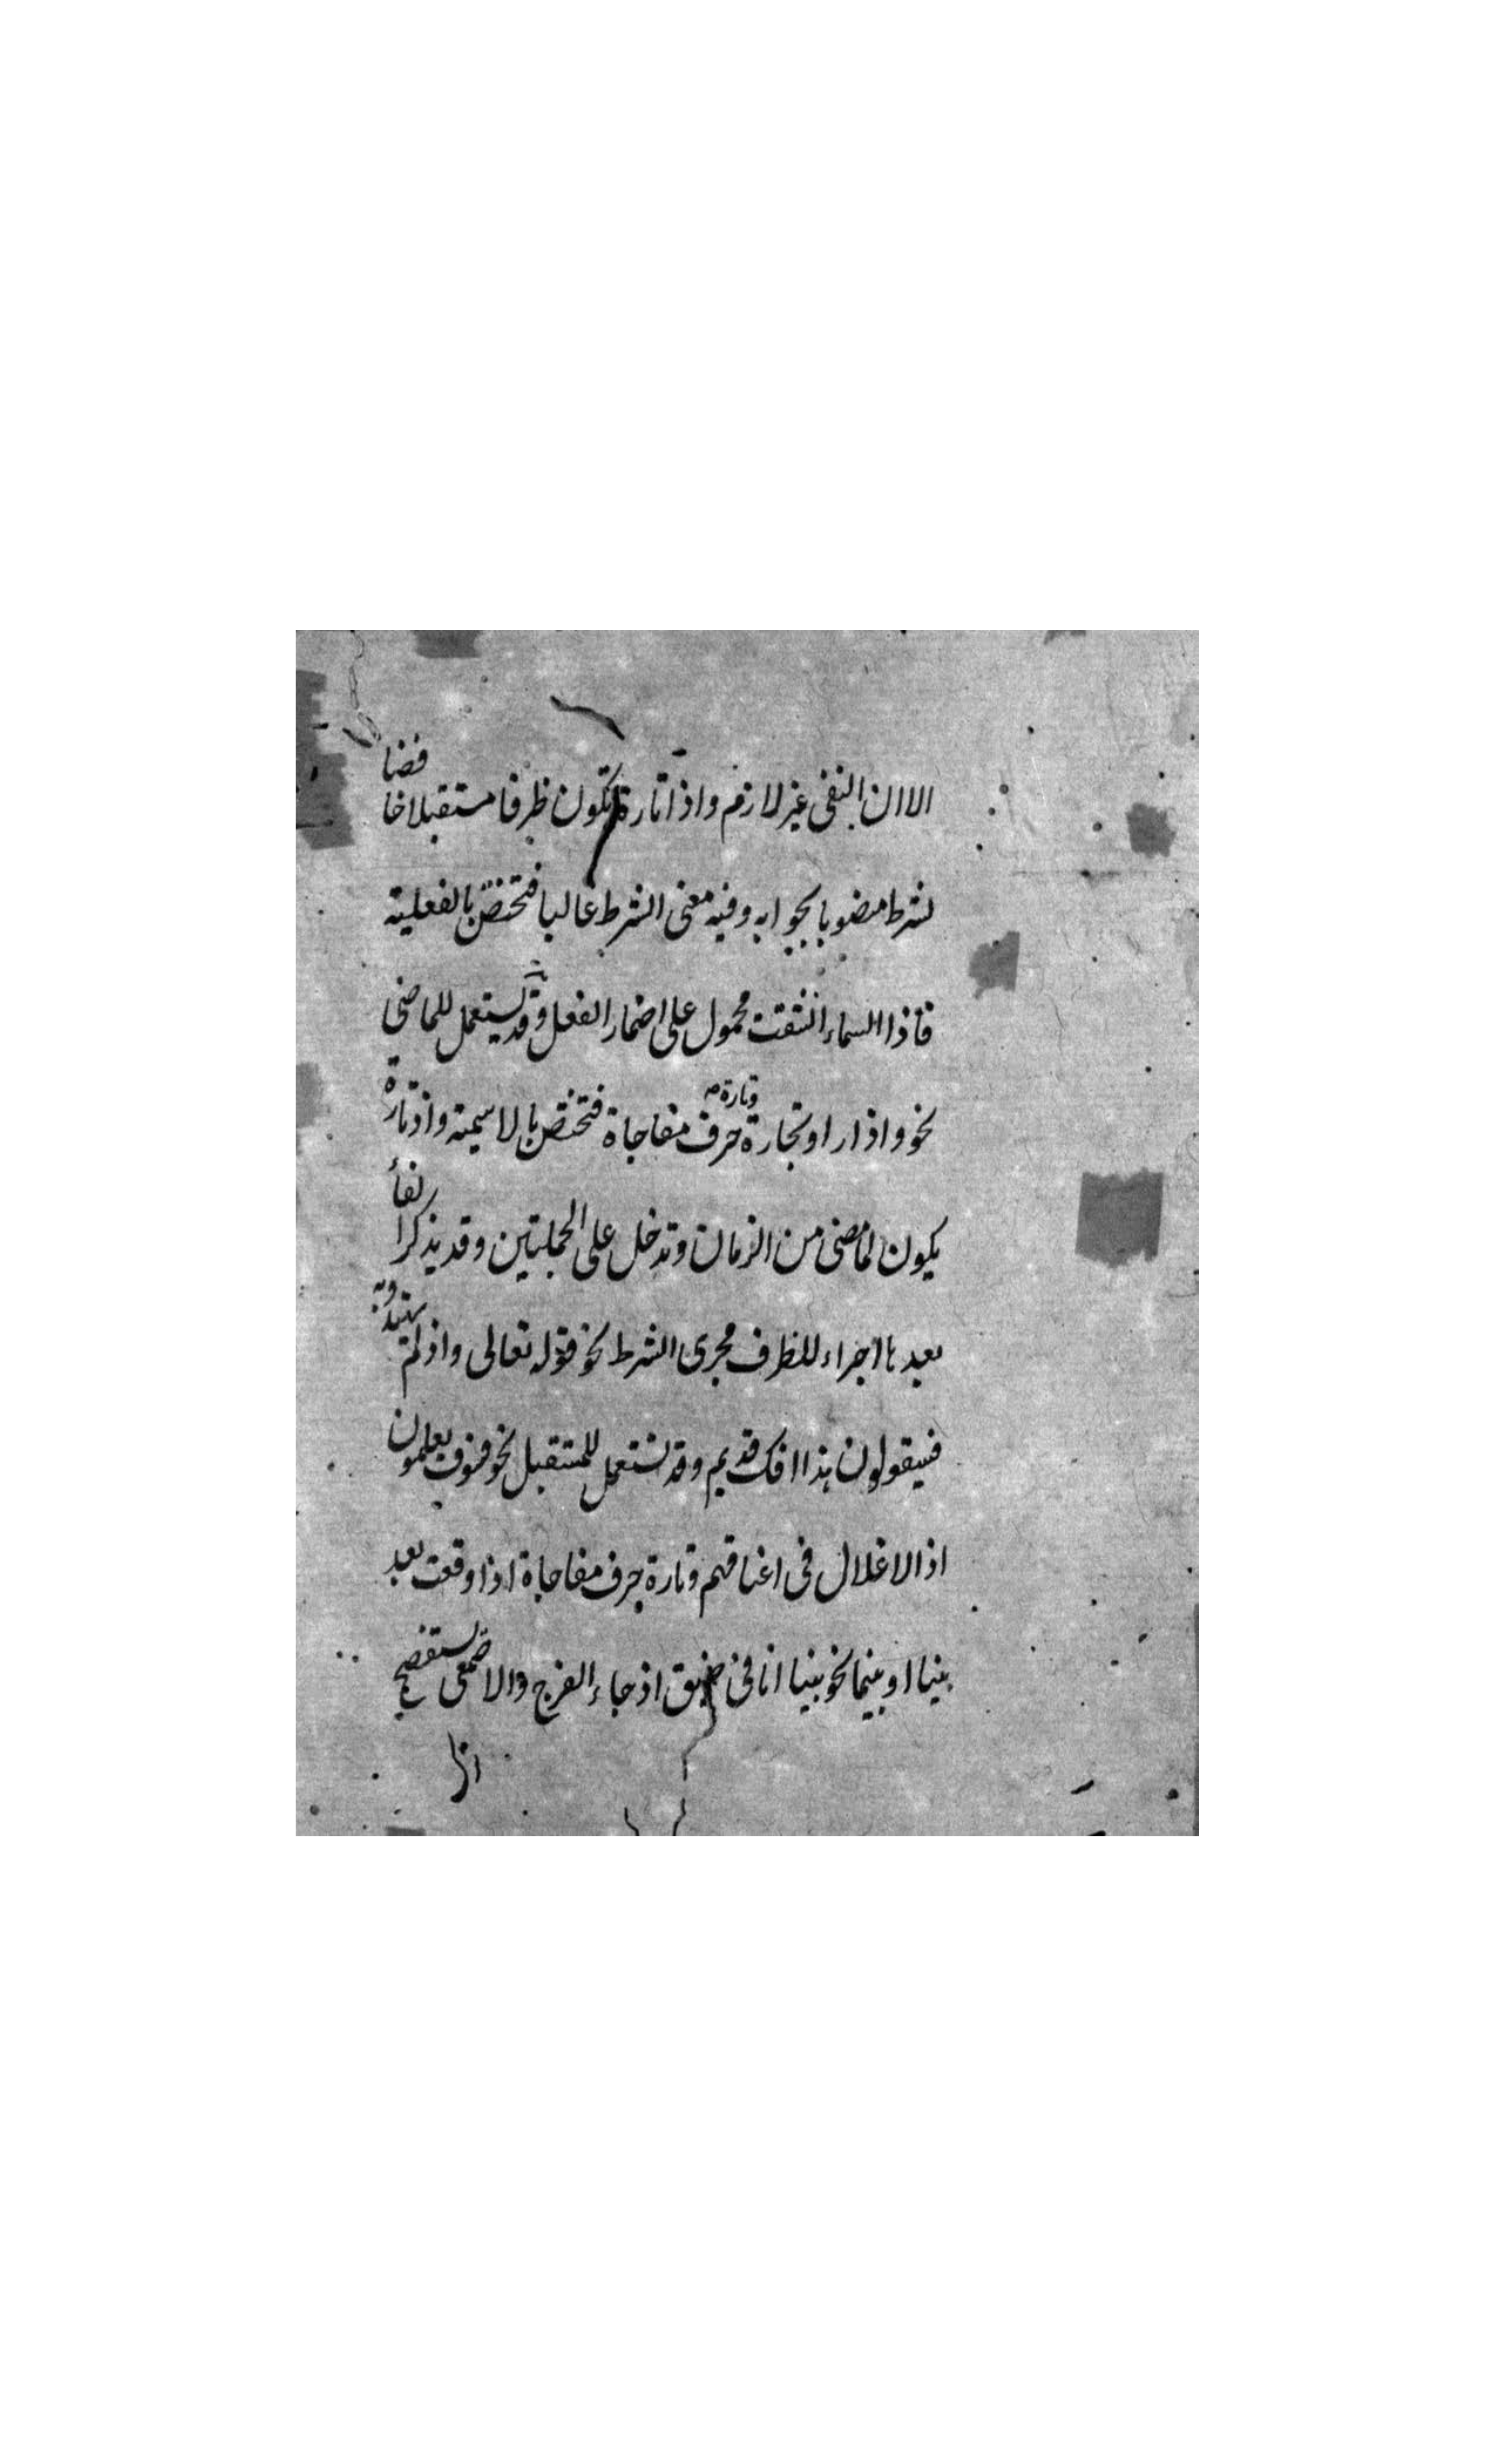 الا ان النفى غير لازم واذا تارة تكون ظرفا مستقبلا خافضا
لشرطه منصوبا بجوابه وفيه معنى الشرط غالبا فتختص بالفعلية
فاذا السماء انشقت محمول على اضمار الفعل وقد يستعمل للماضى
نحو واذا راوا تجارة وتارة حرف مفاجاة فتختص بالاسمية واذ تارة
يكون لما مضى من الزمان وتدخل على الجملتين وقد يذكر الفاء
بعدها اجراء للظرف مجرى الشرط نحو قوله تعالى واذ لم يهتدوا به
فسيقولون هذا افك قديم وقد تستعمل للمستقبل نحو فسوف يعلمون
اذ الاغلال فى اعناقهم وتارة حرف مفاجاة اذا وقعت بعد
بينا او بينما نحو بينا انا فى ضيق اذ جاء الفرج والاصمعى يستفصح